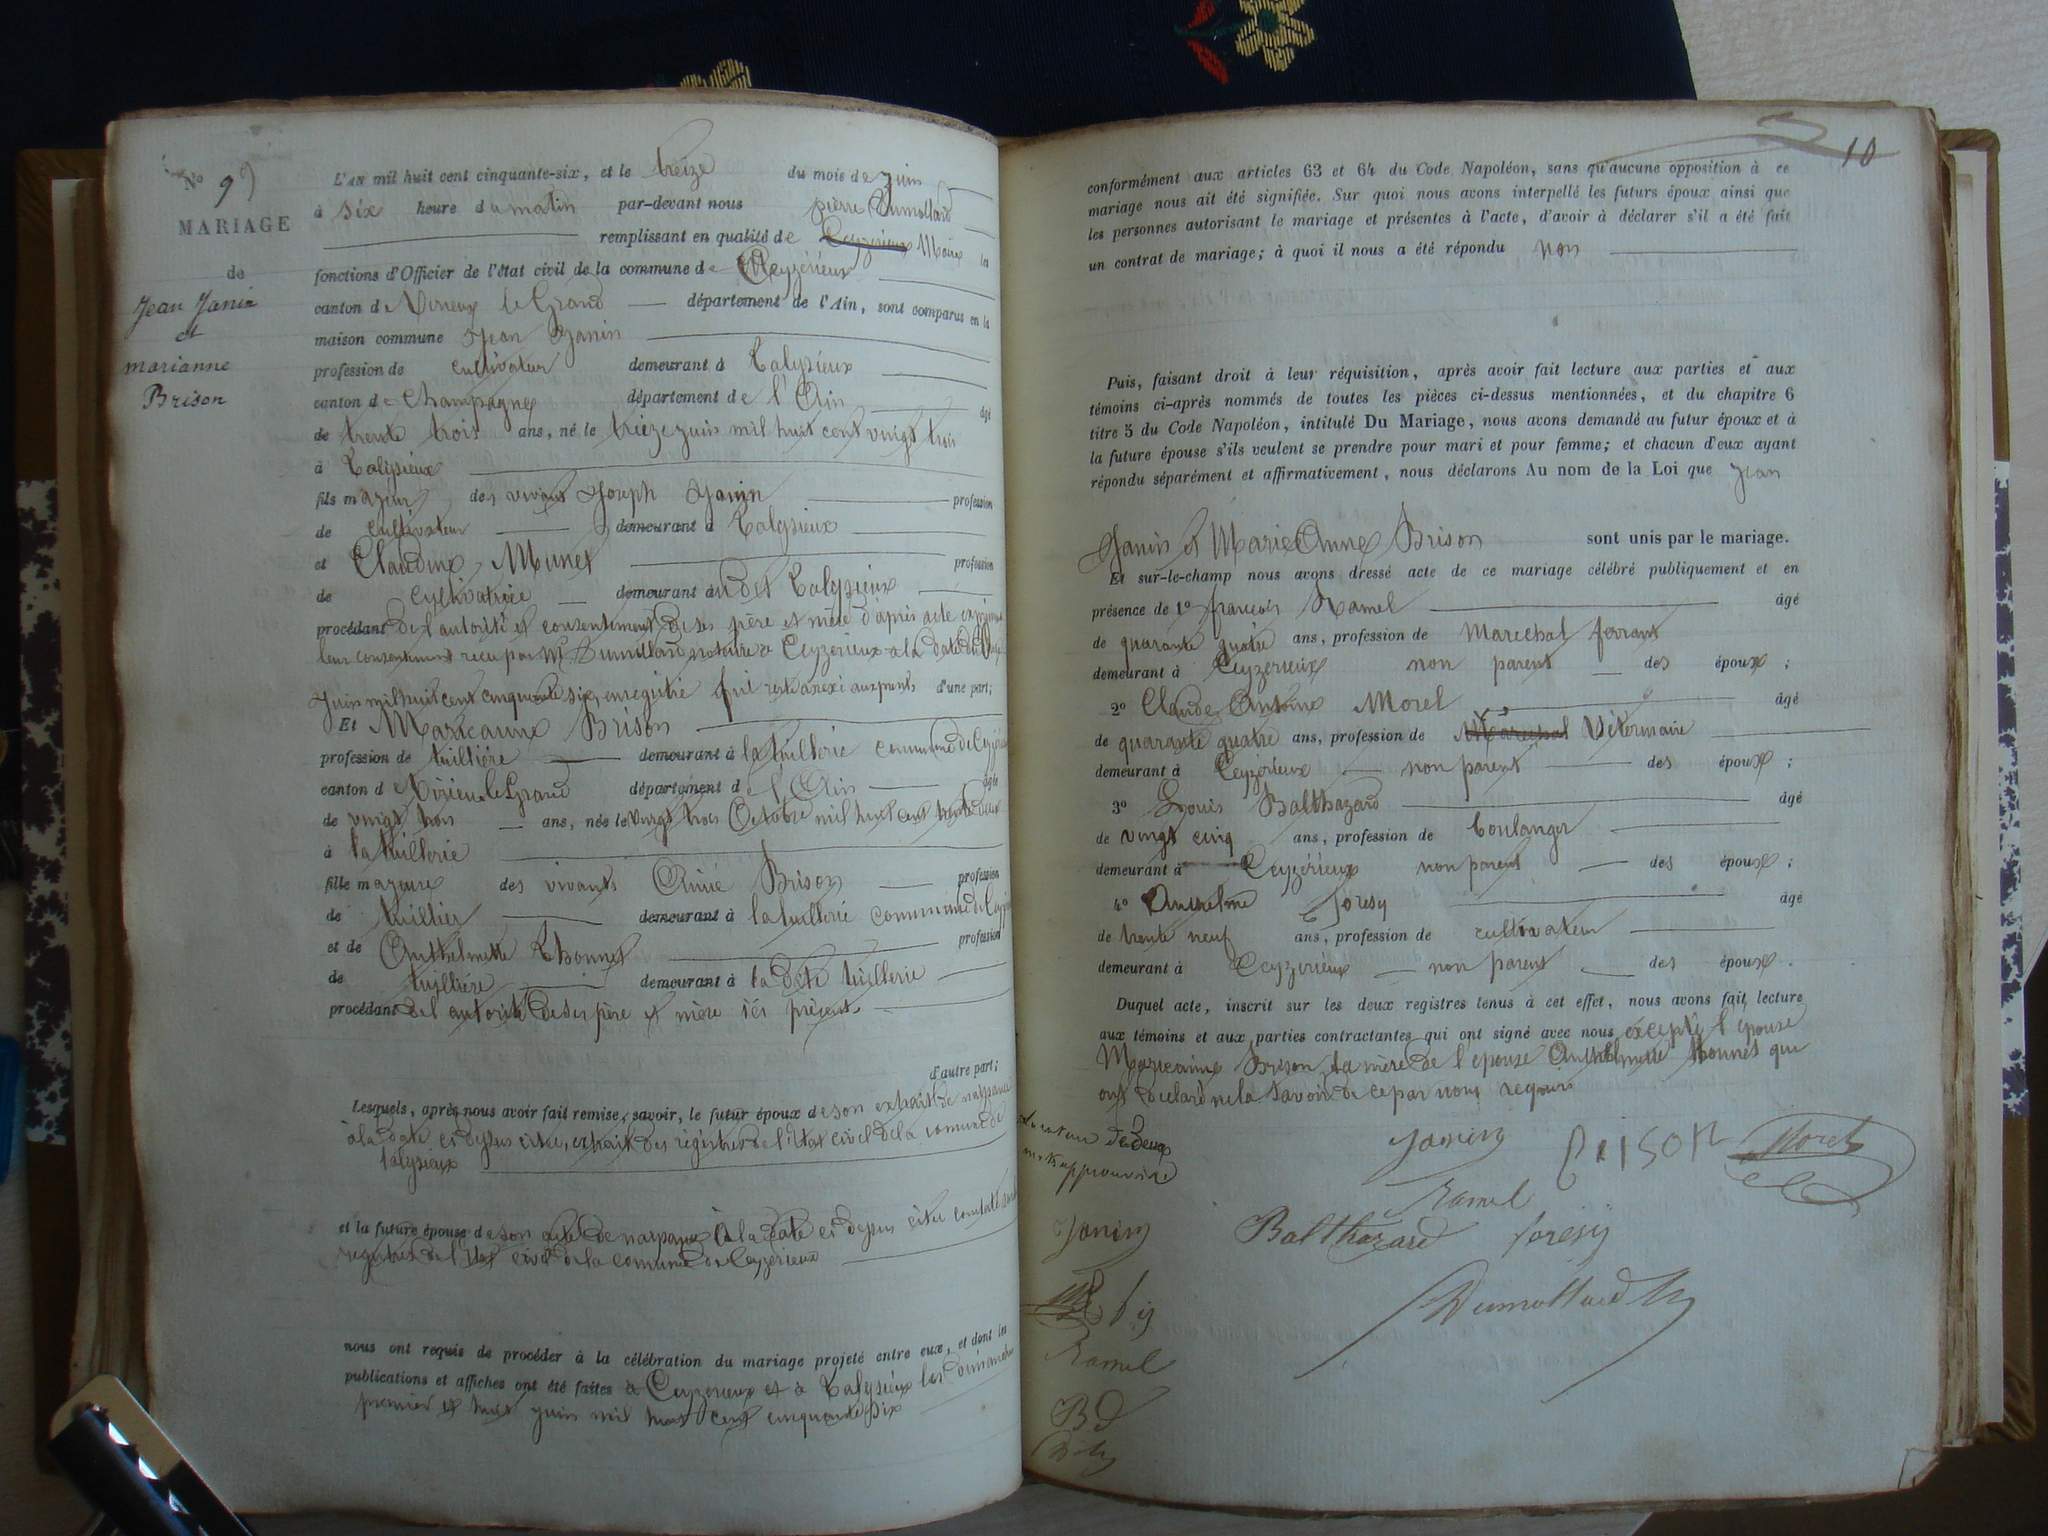 No 9
MARIAGE
de
Jean Janin
et
marianne
Brison
L'AN mil huit cent cinquante-six, et le treize du mois de juin
à six heure du matin par-devant nous pierre Dumollard
remplissant en qualité de Ceyzérieux Maire les
fonctions d'Officier de l'état civil de la commune de Ceyzérieux
canton de Virieux le Grand département de l'Ain, sont comparus en la
maison commune Jean Janin
profession de cultivateur demeurant à Talyssieux
canton de Champagne département de l'Ain âgé
de trente trois ans, né le treize juin mil huit cent vingt trois
à Talissieux
fils majeur des vivans Joseph Janin profession
de cultivateur demeurant à Talyssieux
et Claudine Munet profession
de cultivatrice demeurant à Talyssieux
procédant de l'autorité et consentement de ses père et mère d'après acte
leur consentement reçu par Me Dumollard notaire à Ceyzerieux à la date du
Juin mil huit cent cinquante six, enregistré qui reste anexé aux d'une part;
Et Marieanne Brison
profession de tuillière demeurant à la tuillerie commune de
canton de Virieu le Grand département de l'Ain âgée
de vingt trois ans, née le vingt trois Octobre mil huit cent trente deux
à la tuillerie
fille majeure des vivants Aimé Brison profession
de tuillier demeurant à la tuillerie commune de
et de Anthelmette Thonnet profession
de tuillière demeurant à la dite tuillerie
procédant de l'autorité de ses père et mère ici présents
d'autre part;
Lesquels, après nous avoir fait remise, savoir, le futur époux de son extrait de naissance
à la date ci dessus citée, extrait des registres de l'état civil de la comune de
Talyssieux
et la future épouse de son acte de naissance à la date ci dessus citée constaté
registres de l'état civil de la comune de Ceyzerieux
nous ont requis de procéder à la célébration du mariage projeté entre eux, et dont les
publications et affiches ont été faites à Ceyzerieux et à Talyssieux les dimanches
premier et huit juin mil huit cent cinquante six
10
conformément aux articles 63 et 64 du Code Napoléon, sans qu'aucune opposition à ce
mariage nous ait été signifiée. Sur quoi nous avons interpellé les futurs époux ainsi que
les personnes autorisant le mariage et présentes à l'acte, d'avoir à déclarer s'il a été fait
un contrat de mariage; à quoi il nous a été répondu non
Puis, faisant droit à leur réquisition, après avoir fait lecture aux parties et aux
témoins ci-après nommés de toutes les pièces ci-dessus mentionnées, et du chapitre 6
titre 5 du Code Napoléon, intitulé Du Mariage, nous avons demandé au futur époux et à
la future épouse s'ils veulent se prendre pour mari et pour femme; et chacun d'eux ayant
répondu séparément et affirmativement, nous déclarons Au nom de la Loi que Jean
Janin et Marie Anne Brison sont unis par le mariage.
Et sur-le-champ nous avons dressé acte de ce mariage célébré publiquement et en
présence de 1º françois Ramel âgé
de quarante quatre ans, profession de Marechal ferrant
demeurant à Ceyzerieux non parent des époux;
2º Claude Antoine Morel âgé
de quarante quatre ans, profession de Maréchal Véterinaire
demeurant à Ceyzérieux non parent des époux;
3º Louis Balthazard âgé
de vingt cinq ans, profession de boulanger
demeurant à Ceyzérieux non parent des époux;
4º Anthelme foresy âgé
de trente neuf ans, profession de cultivateur
demeurant à Ceyzérieux non parent des époux.
Duquel acte, inscrit sur les deux registres tenus à cet effet, nous avons fait lecture
aux témoins et aux parties contractantes qui ont signé avec nous excepté l'épouse
Marieanne Brison, la mère de l'épouse Anthelmette thonnet qui
ont déclaré ne la savoir de ce par nous requis
de deux
Janin Brison Morel
Ramel
Balthazard foresy
Dumollard
Janin
Ramel
B d